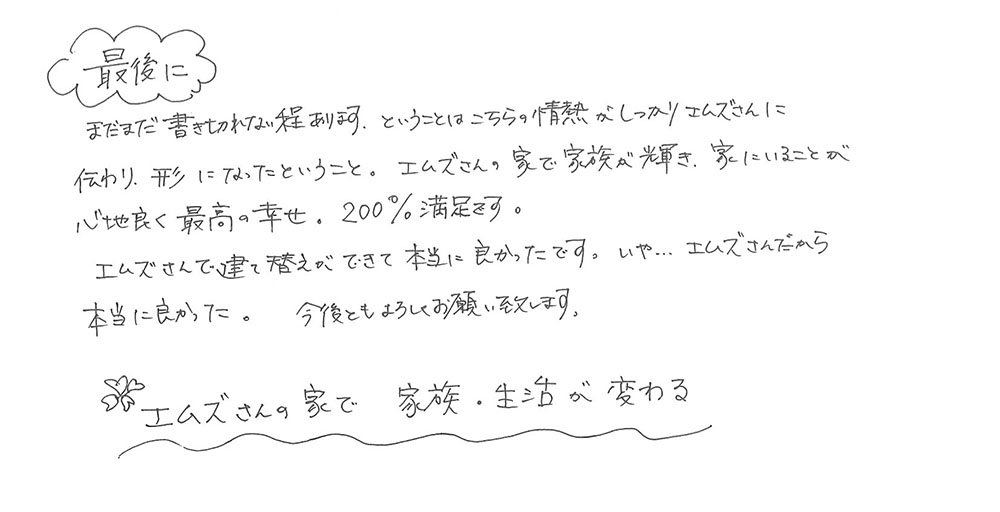 最後に
まだまだ書き切れない程あります、ということはこちらの情熱がしっかりエムズさんに
伝わり、形になったということ。エムズさんの家で家族が輝き、家にいることが
心地良く最高の幸せ。200%満足です。
エムズさんで建て替えができて本当に良かったです。いや…エムズさんだから
本当に良かった。 今後ともよろしくお願い致します。
エムズさんの家で 家族・生活が変わる